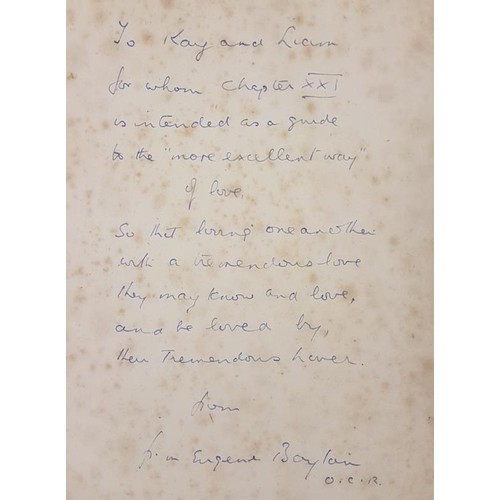 To Kay and Liam
for whom Chapter XXI
is intended as a guide
to the "more excellent way"
of love,
So that loving one another
with a tremendous love
they may know and love,
and be loved by,
their Tremendous Lover.
from
fr. m Eugene Boylan
O.C.R.